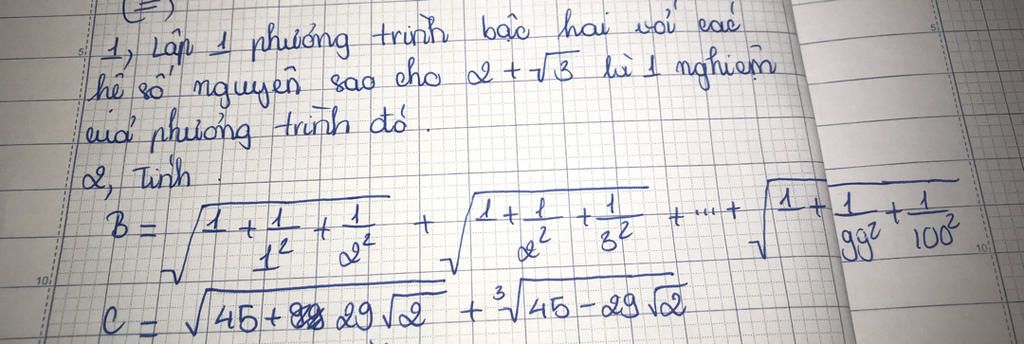 (=)
1, Lập 1 phương trình bậc hai với các
hệ số nguyên sao cho 2 + √3 là 1 nghiệm
của phương trình đó.
2, Tính.
B = √(1 + 1/1² + 1/2²) + √(1 + 1/2² + 1/3²) + ... + √(1 + 1/99² + 1/100²)
C = √(45 + 29√2) + ³√(45 - 29√2)